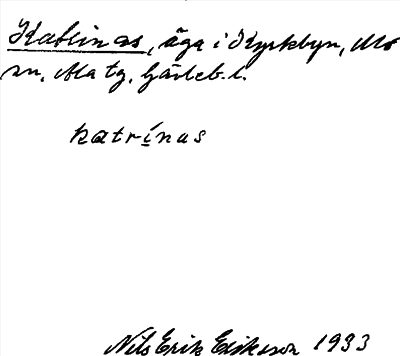 Katrinas, äga i Kyrkbyn, Mo
sn, Ala tg, Gävleb. l.
katrínas
Nils Erik Eriksson 1933